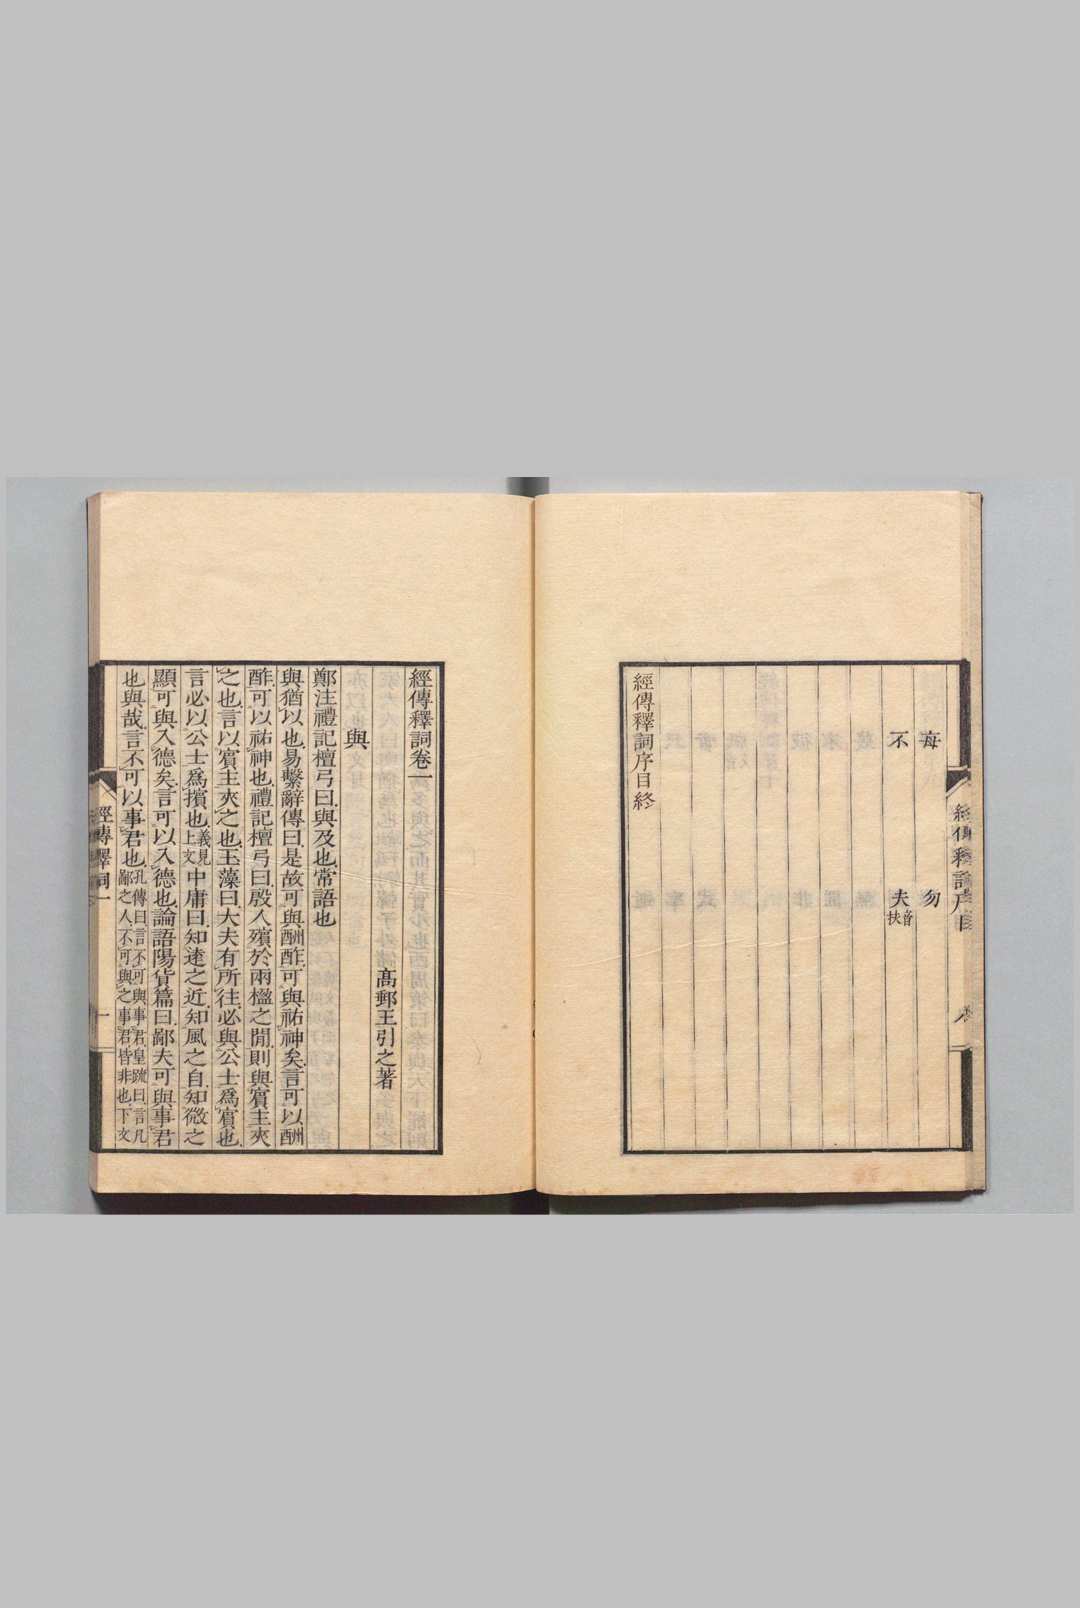 毎　勿
不　夫音扶
經傳釋詞序目終
經傳釋詞序目
經傳釋詞卷一
高郵王引之著
與
鄭注禮記檀弓曰與及也常語也
與猶以也易繫辭傳曰是故可與酬酢可與祐神矣言可以酬
酢可以祐神也禮記檀弓曰殷人殯於兩楹之閒則與賓主夾
之也言以賓主夾之也玉藻曰大夫有所往必與公士爲賓也
言必以公士爲擯也義見上文中庸曰知遠之近知風之自知微之
顯可與入德矣言可以入德也論語陽貨篇曰鄙夫可與事君
也與哉言不可以事君也孔傳曰言不可與事君皇疏曰言凡鄙之人不可與之事君皆非也下文
經傳釋詞一
一